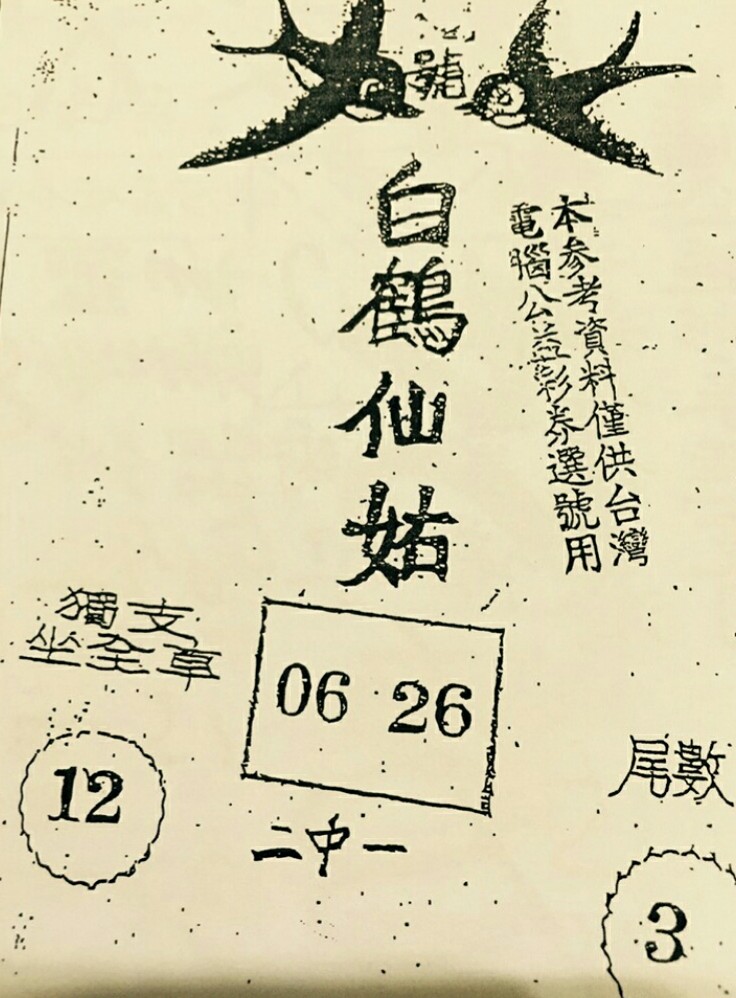 號
白鶴仙姑
本參考資料僅供台灣
電腦公益彩券選號用
獨支
坐全車
06 26
12
二中一
尾數
3